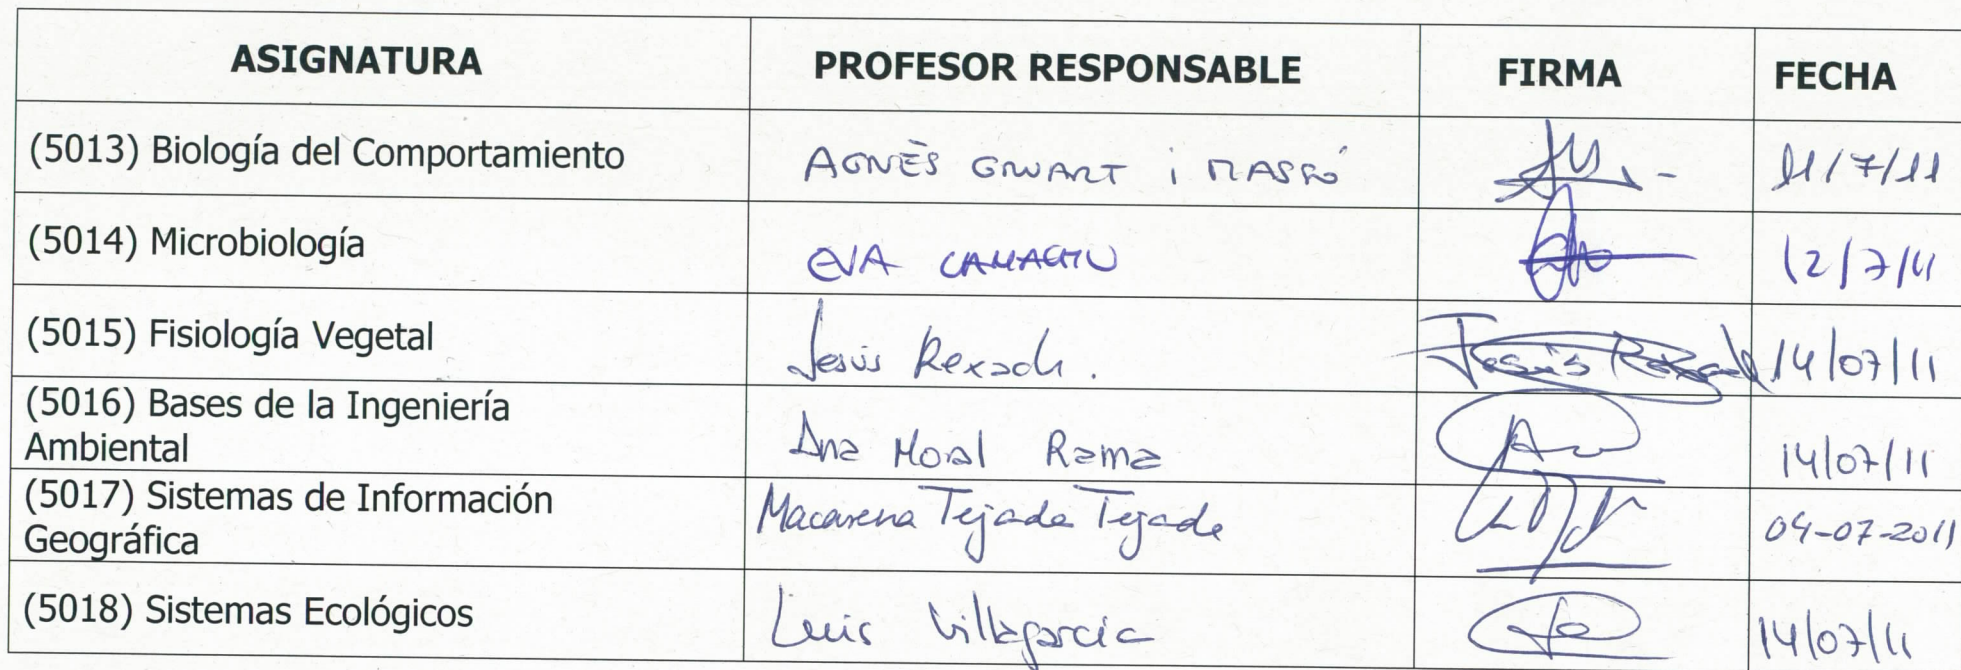 ASIGNATURA PROFESOR RESPONSABLE FIRMA FECHA
(5013) Biología del Comportamiento AGNÈS GRUART i MASSÓ 11/7/11
(5014) Microbiología EVA CAMACHO 12/7/11
(5015) Fisiología Vegetal Jesús Rexach. Jesús Rexach 14/07/11
(5016) Bases de la Ingeniería
Ambiental Ana Moral Rama 14/07/11
(5017) Sistemas de Información
Geográfica Macarena Tejada Tejada 04-07-2011
(5018) Sistemas Ecológicos Luis Villagarcía 14/07/11